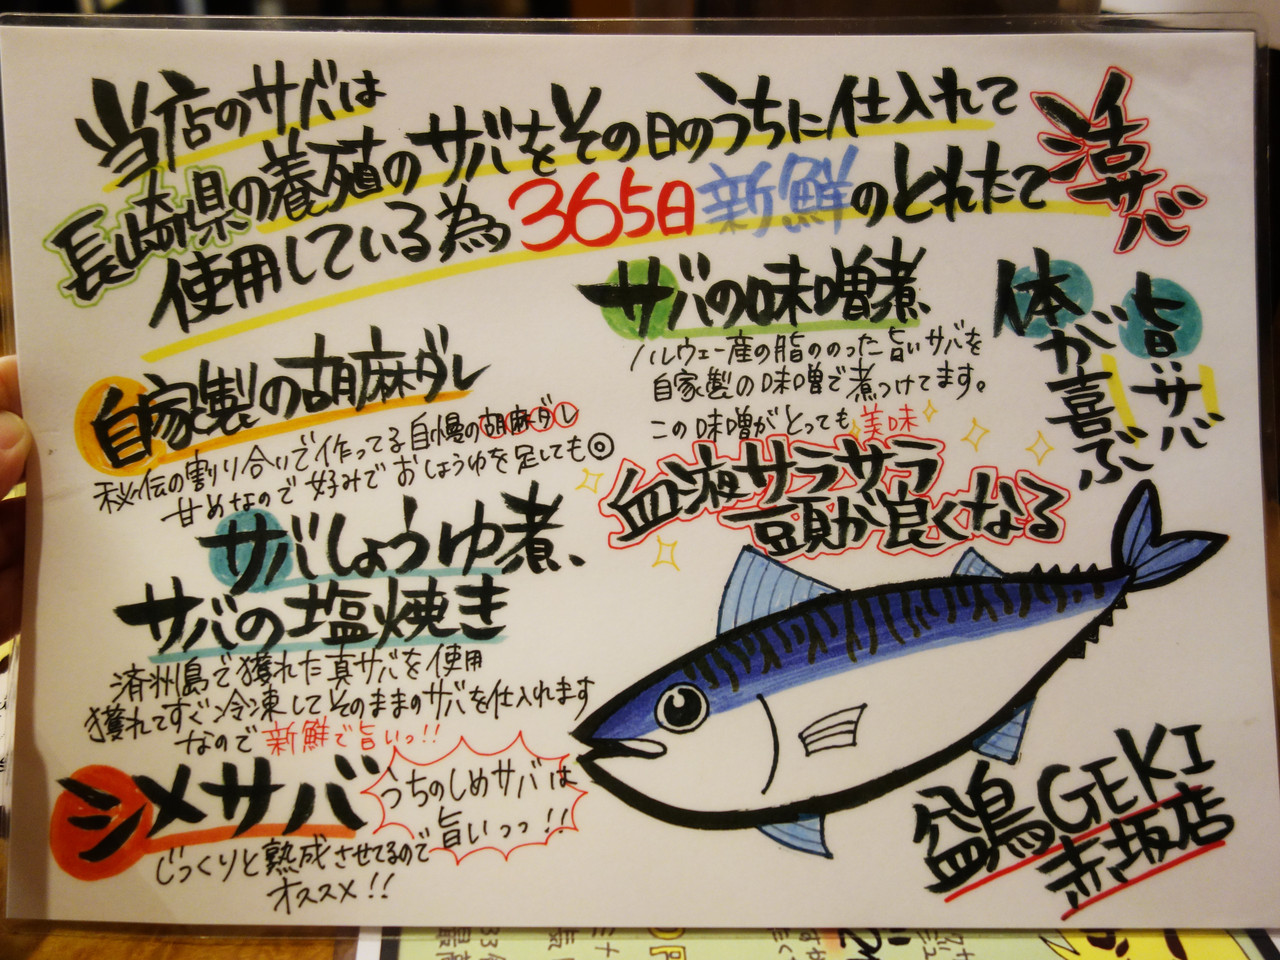 当店のサバは
長崎県の養殖のサバをその日のうちに仕入れて
使用している為365日新鮮のとれたて
活サバ
サバの味噌煮、
ノルウェー産の脂ののった旨いサバを
自家製の味噌で煮つけてます。
この味噌がとっても美味
旨いサバ
体が喜ぶ
自家製の胡麻ダレ
秘伝の割り合いで作ってる自慢の胡麻ダレ
甘めなので好みでおしょうゆを足しても◎
血液サラサラ
頭が良くなる
サバしょうゆ煮、
サバの塩焼き
済州島で獲れた真サバを使用
獲れてすぐ冷凍してそのままのサバを仕入れます
なので新鮮で旨いっ!!
シメサバ
うちのしめサバは
旨いっっ!!
じっくりと熟成させてるので
オススメ!!
GEKI
赤坂店